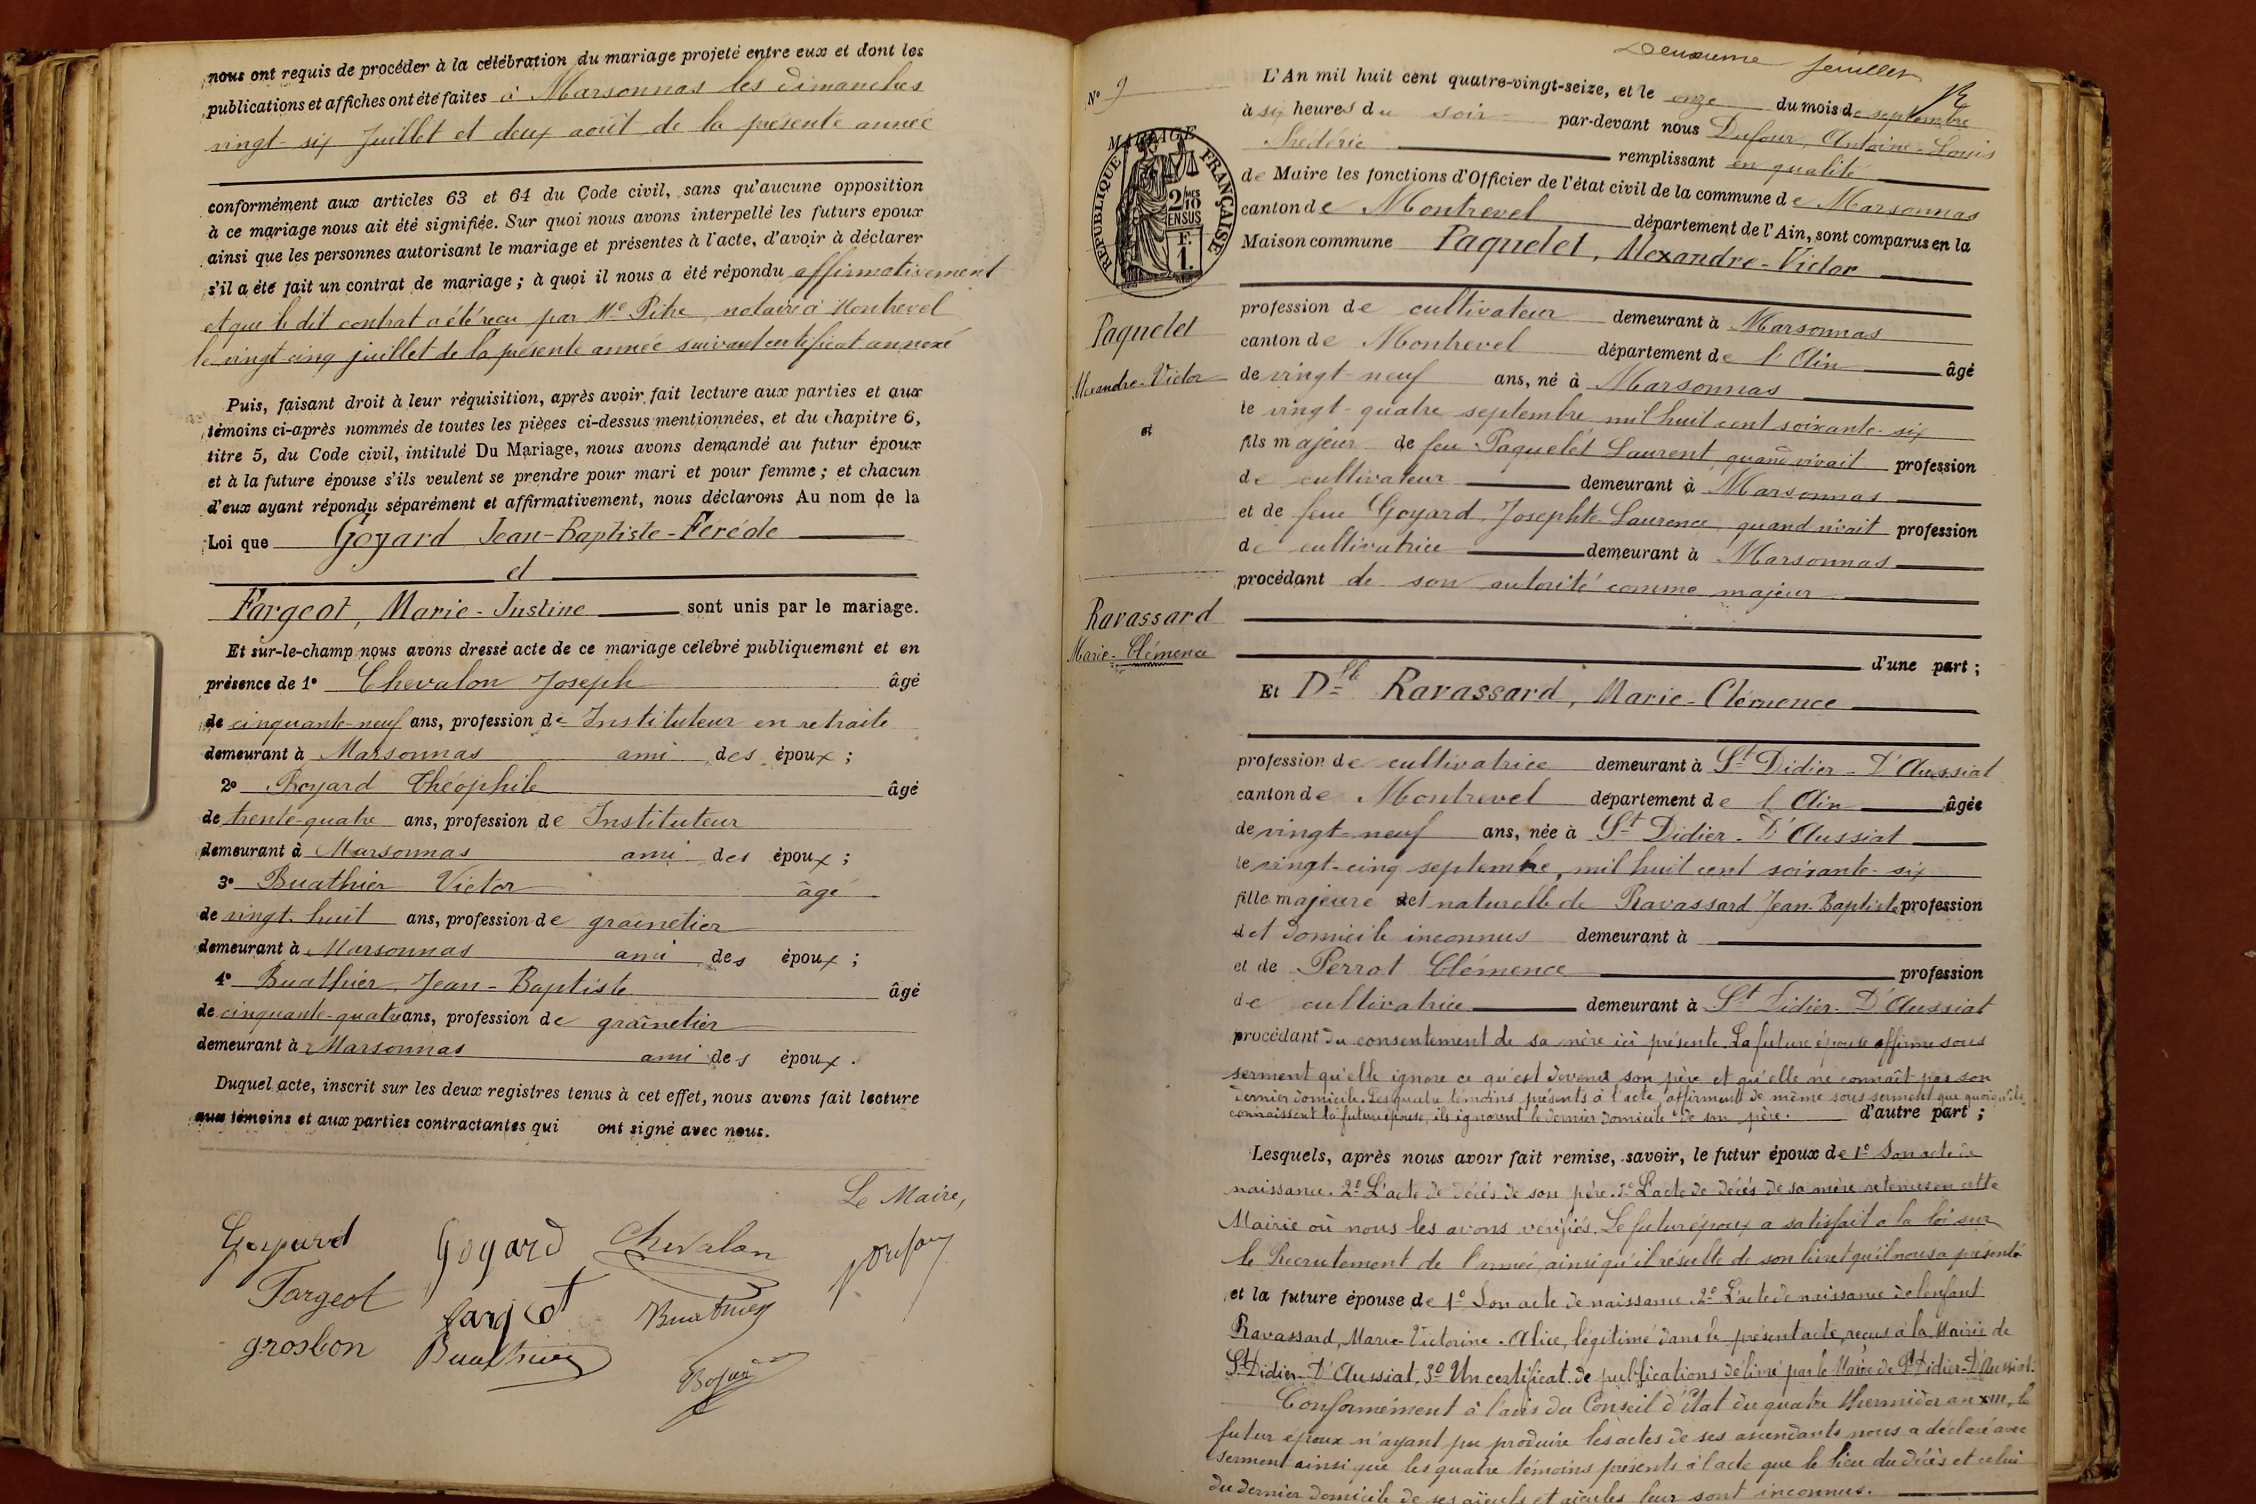 nous ont requis de procéder à la célébration du mariage projeté entre eux et dont les
publications et affiches ont été faites à Marsonnas les dimanches
vingt-six Juillet et deux août de la présente année
conformément aux articles 63 et 64 du Code civil, sans qu'aucune opposition
à ce mariage nous ait été signifiée. Sur quoi nous avons interpellé les futurs epoux
ainsi que les personnes autorisant le mariage et présentes à l'acte, d'avoir à déclarer
s'il a été fait un contrat de mariage ; à quoi il nous a été répondu affirmativement
et que le dit contrat a été reçu par Me Pitre, notaire à Montrevel
le vingt cinq juillet de la présente année suivant certificat annexé
Puis, faisant droit à leur réquisition, après avoir fait lecture aux parties et aux
témoins ci-après nommés de toutes les pièces ci-dessus mentionnées, et du chapitre 6,
titre 5, du Code civil, intitulé Du Mariage, nous avons demandé au futur époux
et à la future épouse s'ils veulent se prendre pour mari et pour femme ; et chacun
d'eux ayant répondu séparément et affirmativement, nous déclarons Au nom de la
Loi que Goyard Jean-Baptiste-Feréole
et
Fargeot, Marie-Justine sont unis par le mariage.
Et sur-le-champ nous avons dressé acte de ce mariage célébré publiquement et en
présence de 1° Chevalon Joseph âgé
de cinquante-neuf ans, profession de Instituteur en retraite
demeurant à Marsonnas ami des époux ;
2° Boyard Théophile âgé
de trente-quatre ans, profession de Instituteur
demeurant à Marsonnas ami des époux ;
3° Buathier Victor âgé
de vingt-huit ans, profession de grainetier
demeurant à Marsonnas ami des époux ;
4° Buathier, Jean-Baptiste âgé
de cinquante-quatre ans, profession de grainetier
demeurant à Marsonnas ami des époux.
Duquel acte, inscrit sur les deux registres tenus à cet effet, nous avons fait lecture
aux témoins et aux parties contractantes qui ont signé avec nous.
Le Maire,
Goyard Chevalon Dufour
Fargeot fargeot Buathier
grosbon Buathier
Deuxième feuillet
N° 9
L'An mil huit cent quatre-vingt-seize, et le onze du mois de septembre
à six heures du soir par-devant nous Dufour, Antoine-Louis
Frédéric remplissant en qualité
de Maire les fonctions d'Officier de l'état civil de la commune de Marsonnas
canton de Montrevel département de l'Ain, sont comparus en la
Maison commune Paquelet, Alexandre-Victor
MARIAGE
RÉPUBLIQUE FRANÇAISE
2/10
EN SUS
F.
1.
Paquelet
Alexandre-Victor
et
Ravassard
Marie-Clémence
profession de cultivateur demeurant à Marsonnas
canton de Montrevel département de l'Ain âgé
de vingt-neuf ans, né à Marsonnas
le vingt-quatre septembre mil huit cent soixante-six
fils majeur de feu Paquelet Laurent quand vivait profession
de cultivateur demeurant à Marsonnas
et de feue Goyard, Josephte-Laurence, quand vivait profession
de cultivatrice demeurant à Marsonnas
procédant de son autorité comme majeur
d'une part ;
Et Dlle Ravassard, Marie-Clémence
profession de cultivatrice demeurant à St Didier-D'Aussiat
canton de Montrevel département de l'Ain âgée
de vingt-neuf ans, née à St Didier-D'Aussiat
le vingt-cinq septembre, mil huit cent soixante-six
fille majeure et naturelle de Ravassard Jean-Baptiste profession
et domicile inconnus demeurant à
et de Perrot Clémence profession
de cultivatrice demeurant à St Didier-D'Aussiat
procédant du consentement de sa mère ici présente. La future épouse affirme sous
serment qu'elle ignore ce qu'est devenu son père et qu'elle ne connaît pas son
dernier domicile. Les quatre témoins présents à l'acte, affirment de même sous serment que quoiqu'ils
connaissent la future épouse, ils ignorent le dernier domicile de son père. d'autre part ;
Lesquels, après nous avoir fait remise, savoir, le futur époux de 1° Son acte de
naissance. 2° L'acte de décès de son père. 3° L'acte de décès de sa mère retenus en cette
Mairie où nous les avons vérifiés. Le futur époux a satisfait à la loi sur
le Recrutement de l'armée, ainsi qu'il résulte de son livret qu'il nous a présenté
et la future épouse de 1° Son acte de naissance. 2° L'acte de naissance de l'enfant
Ravassard, Marie-Victorine-Alice, légitimé dans le présent acte, reçus à la Mairie de
St Didier-D'Aussiat. 3° Un certificat de publications délivré par le Maire de St Didier-D'Aussiat.
Conformément à l'avis du Conseil d'État du quatre thermidor an XIII, le
futur époux n'ayant pu produire les actes de ses ascendants nous a déclaré avec
serment ainsi que les quatre témoins présents à l'acte que le lieu du décès et celui
du dernier domicile de ses aïeuls et aïeules leur sont inconnus.